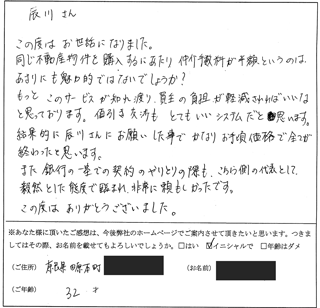 辰川さん
この度はお世話になりました。
同じ不動産物件を購入するにあたり仲介手数料が半額というのは、
あまりにも魅力的ではないでしょうか？
もっとこのサービスが知れ渡り、買主の負担が軽減されればいいな
と思っております。値引き交渉もとてもいいシステムだと思います。
結果的に辰川さんにお願いした事でかなりお手頃価格で全てが
終わったと思います。
また銀行の一室での契約のやりとりの際も、こちら側の代表として、
毅然とした態度で臨まれ、非常に頼もしかったです。
この度はありがとうございました。
※あなた様に頂いたご感想は、今後弊社のホームページでご案内させて頂きたいと思います。つきま
してはその際、お名前を載せてもよろしいでしょうか。□はい ☑イニシャルで □年齢はダメ
（ご住所）
（お名前）
（ご年齢） 32 才